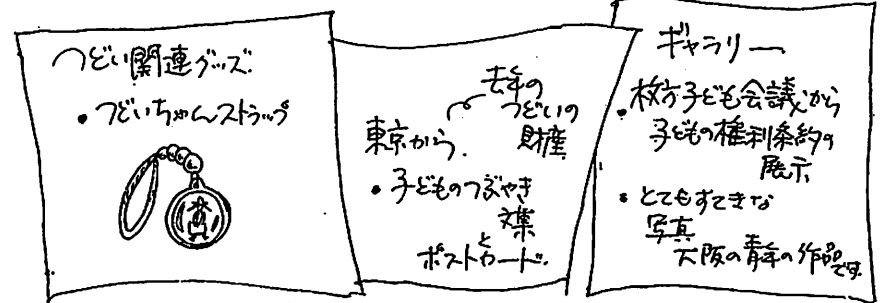 つどい関連グッズ
・つどいちゃんストラップ
去年の
つどいの
財産
東京から
・子どものつぶやき
文集
と
ポストカード
ギャラリー
・枚方子ども会議から
子どもの権利条約の
展示
・とてもすてきな
写真
大阪の青年の作品です